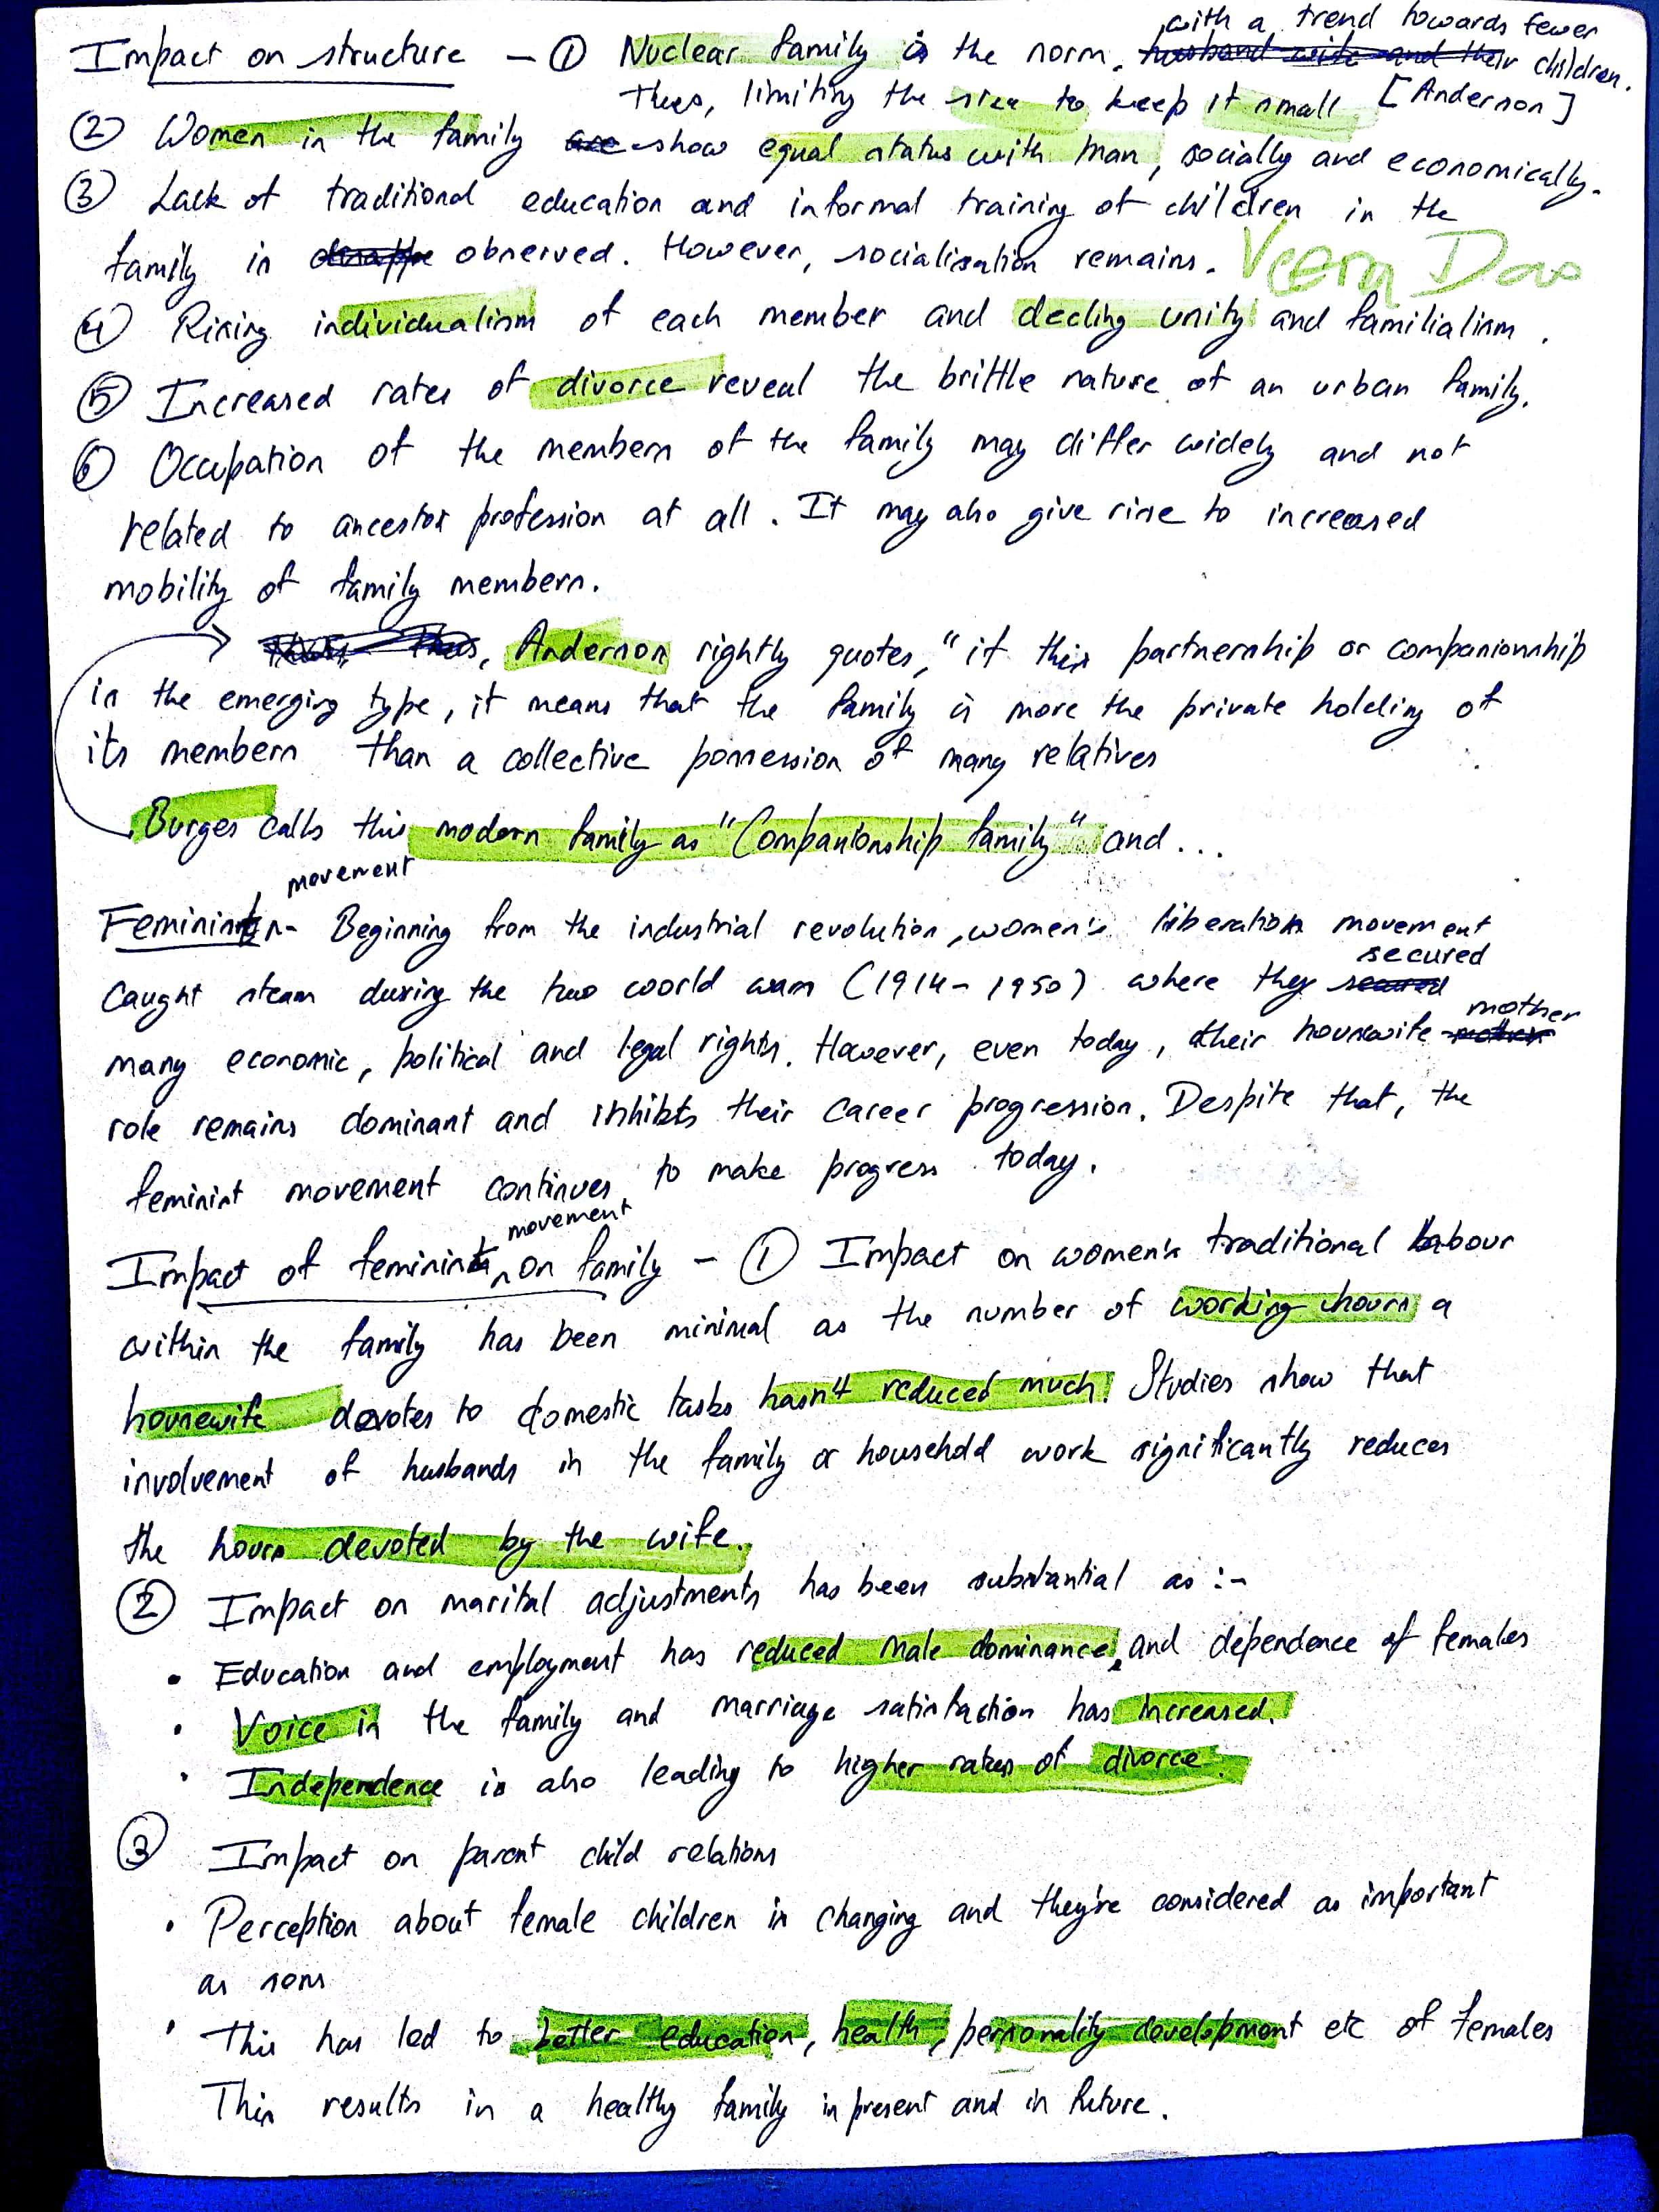 with a trend towards fewer
Impact on structure - ① Nuclear family is the norm. husband wife and their children.
Thus, limiting the size to keep it small [Anderson]
② Women in the family are show equal status with man, socially and economically.
③ Lack of traditional education and informal training of children in the
family is observed. However, socialisation remains. Veera Das
④ Rising individualism of each member and decling unity and familialism.
⑤ Increased rates of divorce reveal the brittle nature of an urban family.
⑥ Occupation of the members of the family may differ widely and not
related to ancestor profession at all. It may also give rise to increased
mobility of family members.
Thus, Anderson rightly quotes, "if this partnership or companionship
is the emerging type, it means that the family is more the private holding of
its members than a collective possession of many relatives
Burges calls this modern family as "Companionship family" and ...
movement
Feminist - Beginning from the industrial revolution, women's liberation movement
secured
caught steam during the two world wars (1914-1950) where they secured
mother
many economic, political and legal rights. However, even today, their housewife mother
role remains dominant and inhibits their career progression. Despite that, the
feminist movement continues to make progress today.
movement
Impact of feminist on family - ① Impact on women's traditional labour
within the family has been minimal as the number of working hours a
housewife devotes to domestic tasks hasn't reduced much. Studies show that
involvement of husbands in the family or household work significantly reduces
the hours devoted by the wife.
② Impact on marital adjustments has been substantial as :-
• Education and employment has reduced male dominance, and dependence of females
• Voice in the family and marriage satisfaction has increased.
• Independence is also leading to higher rates of divorce.
③ Impact on parent child relations
• Perception about female children is changing and they're considered as important
as sons
• This has led to better education, health, personality development etc of females
This results in a healthy family in present and in future.